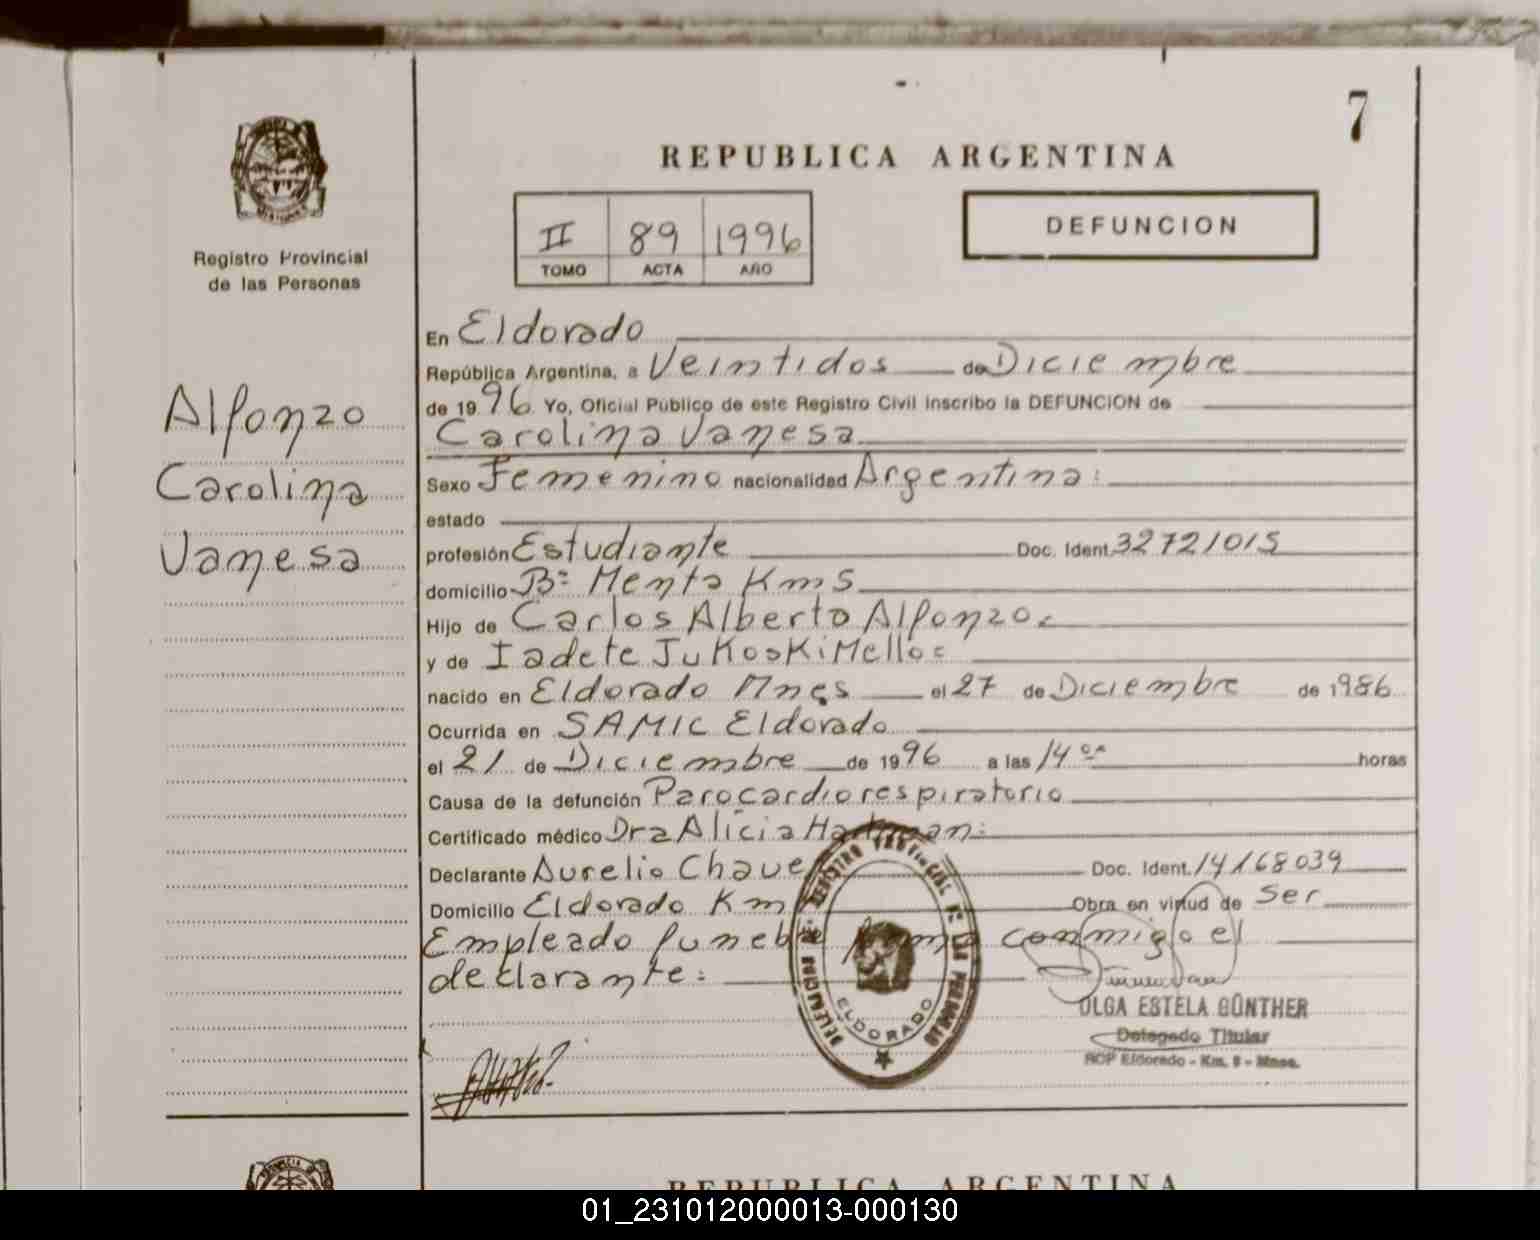 7
REPUBLICA ARGENTINA
II 89 1996
TOMO ACTA AÑO
DEFUNCION
Registro Provincial
de las Personas
Alfonzo
Carolina
Vanesa
En Eldorado
República Argentina, a Veintidos de Diciembre
de 1996 Yo, Oficial Público de este Registro Civil inscribo la DEFUNCION de
Carolina Vanesa
Sexo Femenino nacionalidad Argentina:
estado
profesión Estudiante Doc. Ident. 32721015
domicilio Bº Menta Km5
Hijo de Carlos Alberto Alfonzo
y de Iadete Jukoski Mello
nacido en Eldorado Mnes el 27 de Diciembre de 1986
Ocurrida en SAMIC Eldorado
el 21 de Diciembre de 1996 a las 14 horas
Causa de la defunción Parocardiorespiratorio
Certificado médico Dra Alicia
Declarante Aurelio Doc. Ident. 14168039
Domicilio Eldorado Km Obra en virtud de Ser
Empleado funebre conmigo el
declarante:
REGISTRO PROVINCIAL DE LAS PERSONAS
ELDORADO
OLGA ESTELA GÜNTHER
Delegado Titular
Eldorado - Km. - Mnes.
REPUBLICA ARGENTINA
01_231012000013-000130